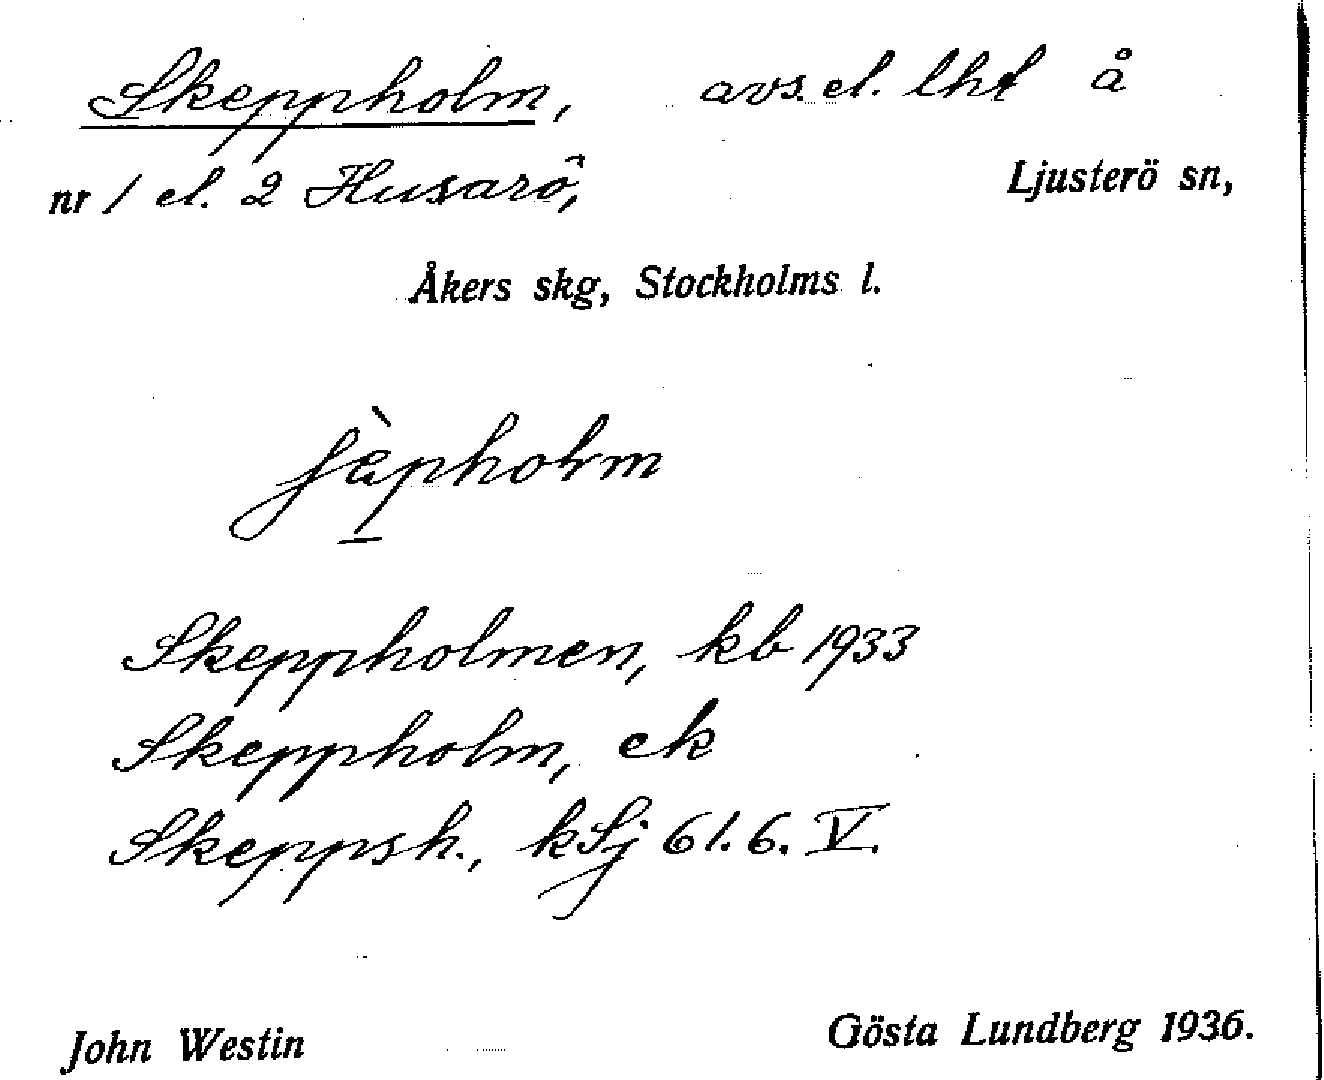 Skeppholm, avs. el. lht å
nr 1 el. 2 Husarö, Ljusterö sn,
Åkers skg, Stockholms l.
Skeppholmen, kb 1933
Skeppholm, ek
Skeppsh., kSj 61.6. V.
John Westin Gösta Lundberg 1936.